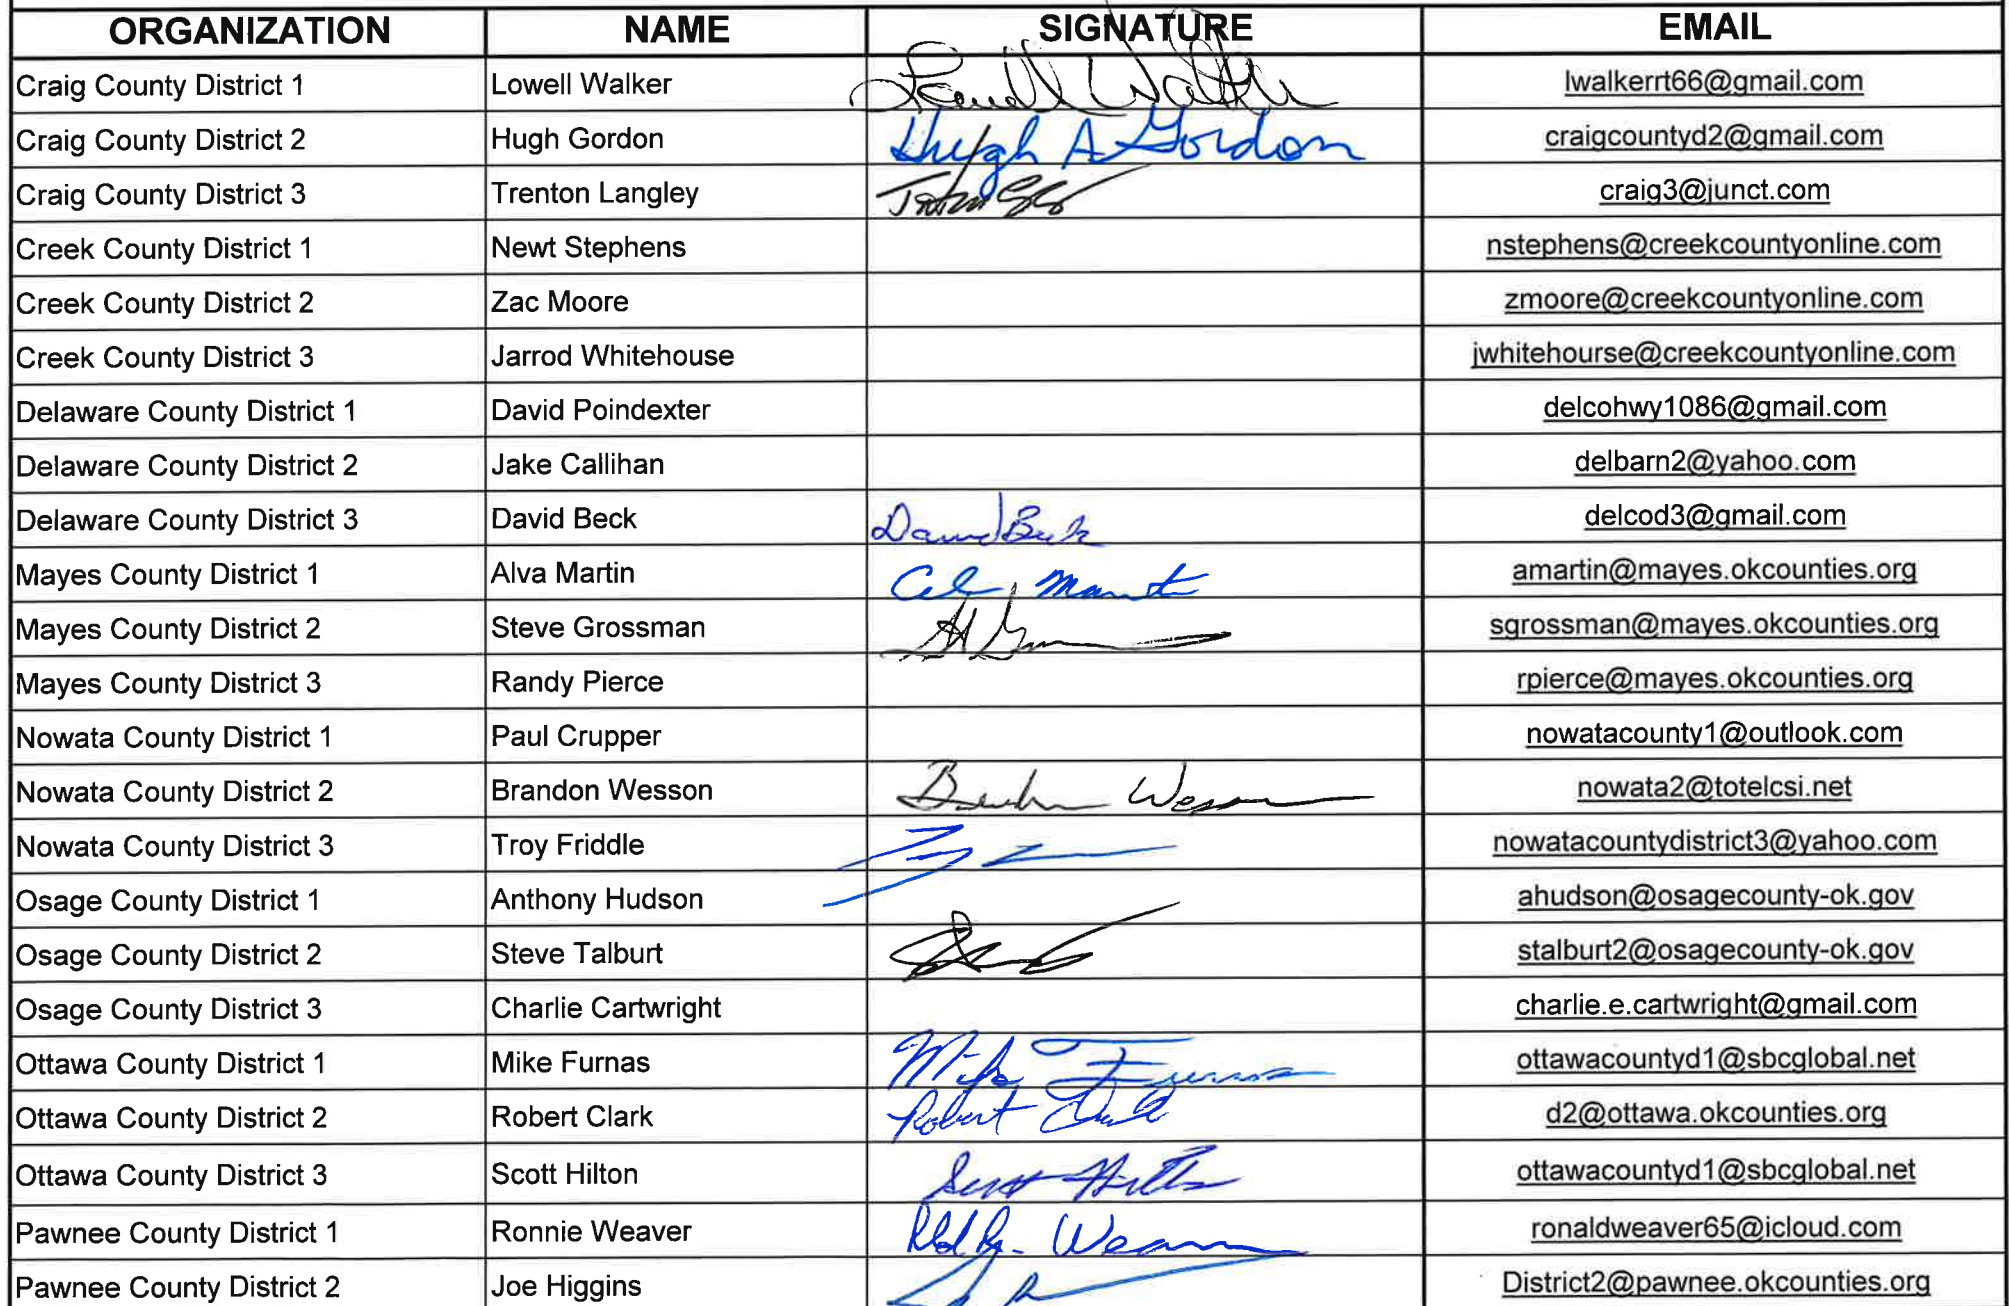 ORGANIZATION NAME SIGNATURE EMAIL
Craig County District 1 Lowell Walker Lowell Walker lwalkerrt66@gmail.com
Craig County District 2 Hugh Gordon Hugh A Gordon craigcountyd2@gmail.com
Craig County District 3 Trenton Langley craig3@junct.com
Creek County District 1 Newt Stephens nstephens@creekcountyonline.com
Creek County District 2 Zac Moore zmoore@creekcountyonline.com
Creek County District 3 Jarrod Whitehouse jwhitehourse@creekcountyonline.com
Delaware County District 1 David Poindexter delcohwy1086@gmail.com
Delaware County District 2 Jake Callihan delbarn2@yahoo.com
Delaware County District 3 David Beck David Beck delcod3@gmail.com
Mayes County District 1 Alva Martin amartin@mayes.okcounties.org
Mayes County District 2 Steve Grossman sgrossman@mayes.okcounties.org
Mayes County District 3 Randy Pierce rpierce@mayes.okcounties.org
Nowata County District 1 Paul Crupper nowatacounty1@outlook.com
Nowata County District 2 Brandon Wesson nowata2@totelcsi.net
Nowata County District 3 Troy Friddle nowatacountydistrict3@yahoo.com
Osage County District 1 Anthony Hudson ahudson@osagecounty-ok.gov
Osage County District 2 Steve Talburt stalburt2@osagecounty-ok.gov
Osage County District 3 Charlie Cartwright charlie.e.cartwright@gmail.com
Ottawa County District 1 Mike Furnas Mike Furnas ottawacountyd1@sbcglobal.net
Ottawa County District 2 Robert Clark Robert Clark d2@ottawa.okcounties.org
Ottawa County District 3 Scott Hilton Scott Hilton ottawacountyd1@sbcglobal.net
Pawnee County District 1 Ronnie Weaver Weaver ronaldweaver65@icloud.com
Pawnee County District 2 Joe Higgins District2@pawnee.okcounties.org